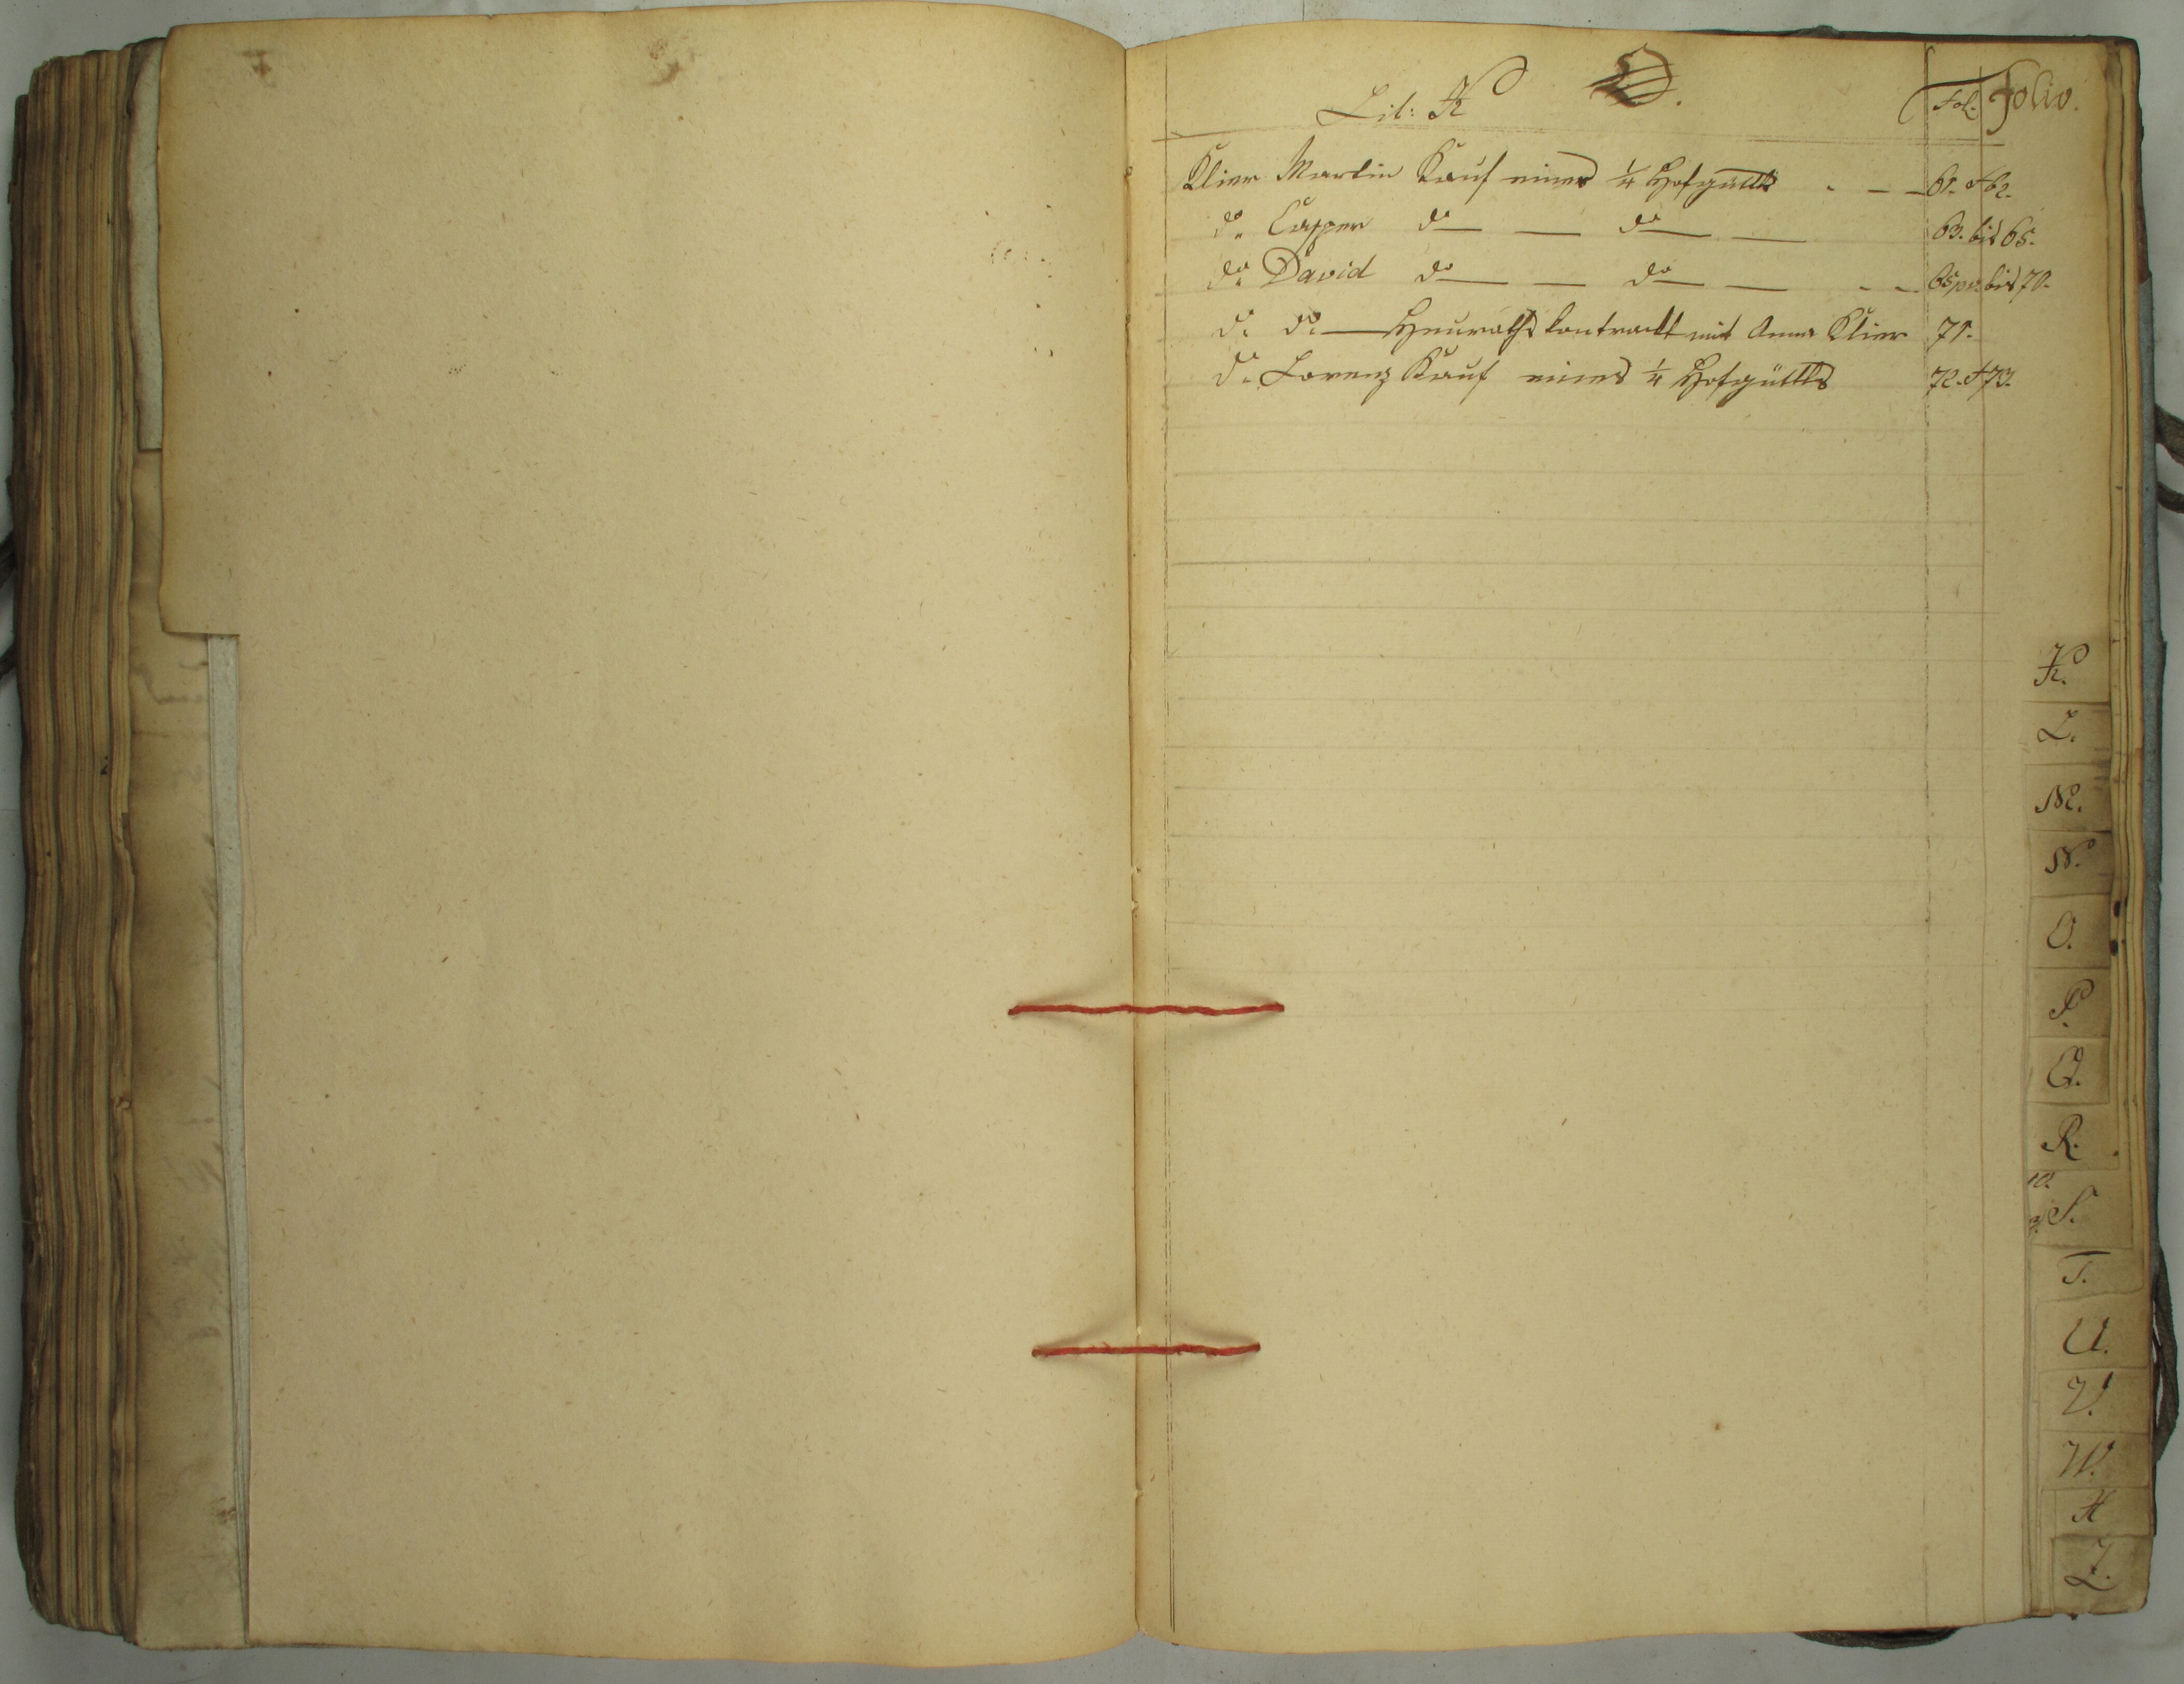 Lit: K D. Fol. Folio.
Klier Martin Kauf eines 1/4 Hofgütts - - - 61. & 62.
do. Casper do — — do — — 63. bis 65.
do. David do — — do — — - - 65 pv. bis 70.
do. do. — Heuraths Contract mit Anna Klier 71.
do. Lorenz Kauf eines 1/4 Hofgüttls 72. & 73.
K.
L.
M.
N.
O.
P.
Q.
R.
10.
S.
T.
U.
V.
W.
X
Z.